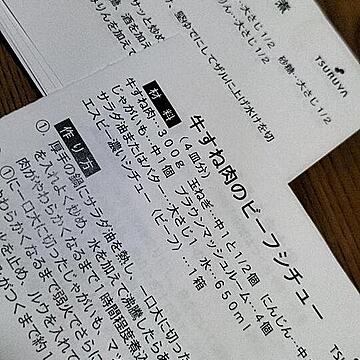 煮
酒…大さじ1/2
砂糖…大さじ1/2
堅ゆでにしてザルに上げ水けを切
サッと炒め
酒を加えて
りんを加えて
TSURUYA
牛すね肉のビーフシチュー
材料
(4皿分)
牛すね肉…300g 玉ねぎ…中1と1/2個 にんじん…中
じゃがいも…中1個 ブラウンマッシュルーム…4個
サラダ油またはバター…大さじ1 水…650ml
エスビー濃いシチュー(ビーフ)…1箱
作り方
①、厚手の鍋にサラダ油を熱し、一口大に切った
を入れよく炒め、水を加えて沸騰したらあ
肉がやわらかくなるまで1時間程度煮込
①に一口大に切ったじゃがいも、マッ
やわらかくなるまで弱火でさらに
を止め、ルウを入れて
がつくまで約1